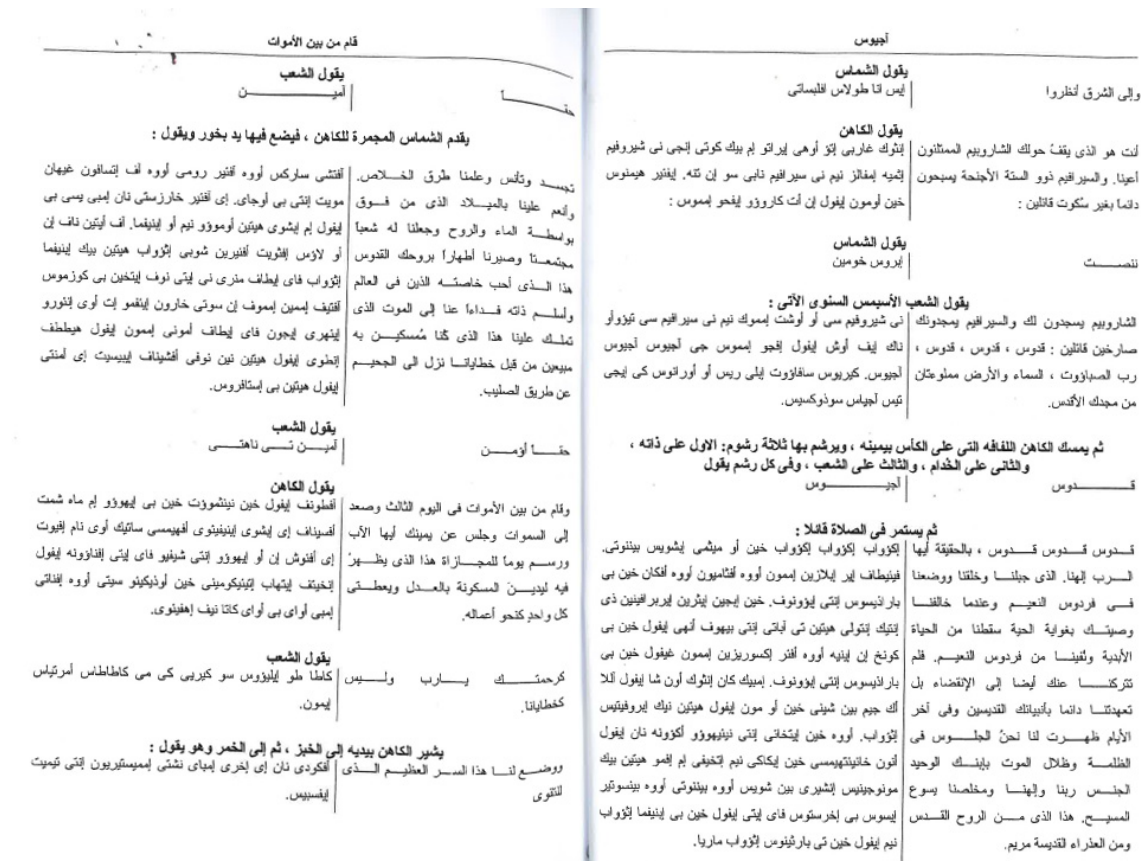 آجيوس
يقول الشماس
وإلى الشرق أنظروا
إيس انا طولاس افلبساتى
يقول الكاهن
أنت هو الذى يقفُ حولك الشاروبيم الممتلئون
أعينا. والسيرافيم ذوو الستة الأجنحة يسبحون
دائما بغير سُكوت قائلين :
إنثوك غاربى إتؤ أوهى إيراتو إم بيك كوتى إنجى نى شيروفيم
إثميه إمفالز نيم نى سيرافيم نابى سو إن تنه. إيفئير هيمنوس
خين أومون إيفول إن أت كاروزؤ إيفحو إمموس :
يقول الشماس
ننصت
إبروس خومين
يقول الشعب الأسبسمس السنوى الآتى :
الشاروبيم يسجدون لك والسيرافيم يمجدونك
صارخين قائلين : قدوس ، قدوس ، قدوس ،
رب الصباؤوت ، السماء والأرض مملوءتان
من مجدك الأقدس.
نى شيروفيم سى أو أوشت إمموك نيم نى سيرافيم سى تيزوأو
ناك إيف أوش إيفول إفجو إمموس جى آجيوس آجيوس
آجيوس. كيريوس سافاؤوت إبلى ريس أو أورانوس كى إيجى
تيس آجياس سوذوكسيس.
ثم يمسك الكاهن اللفافه التى على الكأس بيمينه ، ويرشم بها ثلاثة رشوم: الاول على ذاته ،
والثانى على الخُدام ، والثالث على الشعب ، وفى كل رشم يقول
قدوس
آجيوس
ثم يستمر فى الصلاة قائلا :
قدوس قدوس قدوس ، بالحقيقة أيها
الرب إلهنا. الذى جبلنا وخلقنا ووضعنا
فى فردوس النعيم وعندما خالفنا
وصيتك بغواية الحية سقطنا من الحياة
الأبدية ونُفينا من فردوس النعيم. فلم
تتركنا عنك أيضا إلى الإنقضاء بل
تعهدتنا دائما بأنبيائك القديسين وفى آخر
الأيام ظهرت لنا نحنُ الجلوس فى
الظلمة وظلال الموت بإبنك الوحيد
الجنس ربنا وإلهنا ومخلصنا يسوع
المسيح. هذا الذى من الروح القدس
ومن العذراء القديسة مريم.
إكؤواب إكؤواب إكؤواب خين أو ميثمى إبشويس بيننوتى.
فينيطاف إير إبلازين إممون أووه أفثاميون أووه أفكان خين بى
باراذيسوس إنتى إيؤونوف. خين إبجين إيثرين إيربرافينين ذى
إنتيك إنتولى هيتين تى آباتى إنتى بيهوف أنهى إيفول خين بى
كونخ إن إينيه أووه أفئر إكسوريزين إممون غيفول خين بى
باراذيسوس إنتى إيؤونوف. إمبيك كان إنثوك أون شا إيفول أللا
أك جيم بين شينى خين أو مون إيفول هيتين نيك إبروفيتيس
إثؤواب. أووه خين إيتخائى إنتى نينيهوؤو أكؤونه نان إيفول
أنون خانيئتهيمسى خين إيكاكى نيم إتخيفى إم إفمو هيتين بيك
مونوجينيس إنشيرى بين شويس أووه بيننوتى أووه بينسوتير
إيسوس بى إخرستوس فاى إيتى إيفول خين بى إبنيفما إثؤواب
نيم إيفول خين تى بارثينوس إثؤواب ماريا.
قام من بين الأموات
يقول الشعب
حقاً
آمين
يقدم الشماس المجمرة للكاهن ، فيضع فيها يد بخور ويقول :
تجسد وتأنس وعلمنا طرق الخلاص.
وأنعم علينا بالميلاد الذى من فوق
بواسطة الماء والروح وجعلنا له شعباً
مجتمعتاً وصيرنا أطهاراً بروحك القدوس
هذا الذى أحب خاصته الذين فى العالم
وأسلم ذاته فداءاً عنا إلى الموت الذى
تملك علينا هذا الذى كُنا مُمسكين به
مبيعين من قبل خطايانا نزل الى الجحيم
عن طريق الصليب.
أفتشى ساركس أووه أفئير رومى أووه أف إتسافون غيهان
مويت إنتى بى أوجاى. إى أفئير خارزستى نان إمبى يسى بى
إيفول إم إبشوى هيتين أوموؤو نيم أو إبنيفما. أف أيتين ناف إن
أو لاؤس إفثويت أفئيرين شوبى إثؤواب هيتين بيك إبنيفما
إثؤواب فاى إيطاف منرى نى إيتى نوف إيتخين بى كوزموس
أفتيف إممين إمموف إن سوتى خارون إينفمو إت أوى إنئورو
إينهرى إيجون فاى إيطاف أمونى إممون إيفول هيططف
إنطوى إيفول هيتين نين نوفى أفشيناف إيبيسيت إى آمنتى
إيفول هيتين بى إستافروس.
يقول الشعب
حقاً أؤمن
آمين تى ناهتى
يقول الكاهن
وقام من بين الأموات فى اليوم الثالث وصعد
إلى السموات وجلس عن يمينك أيها الآب
ورسم يوماً للمجازاة هذا الذى يظهرُ
فيه ليدين المسكونة بالعدل ويعطى
كل واحدٍ كنحو أعماله.
أفطونف إيفول خين نيئثموؤت خين بى إيهوؤو إم ماه شمت
أفسيناف إى إبشوى إينيفيتوى أفهيمسى ساتيك أوى نام إفيوت
إى أفئوش إن أو إيهوؤو إنتى شيفيو فاى إيتى إفناؤونه إيفول
إنخيتف إيتهاب إتيئيكومينى خين أوذيكيئو سيتى أووه إفناتى
إمبى أواى بى أواى كاتا نيف إهفيئوى.
يقول الشعب
كرحمتك يارب وليس
كخطايانا.
كاطا طو إيليؤوس سو كيريى كى مى كاطاطاس أمرتياس
إيمون.
يشير الكاهن بيديه إلى الخبز ، ثم إلى الخمر وهو يقول :
ووضع لنا هذا السر العظيم الذى
للتقوى
أفكودى نان إى إخرى إمباى نشتى إمميستيريون إنتى تيميت
إيفسبيس.